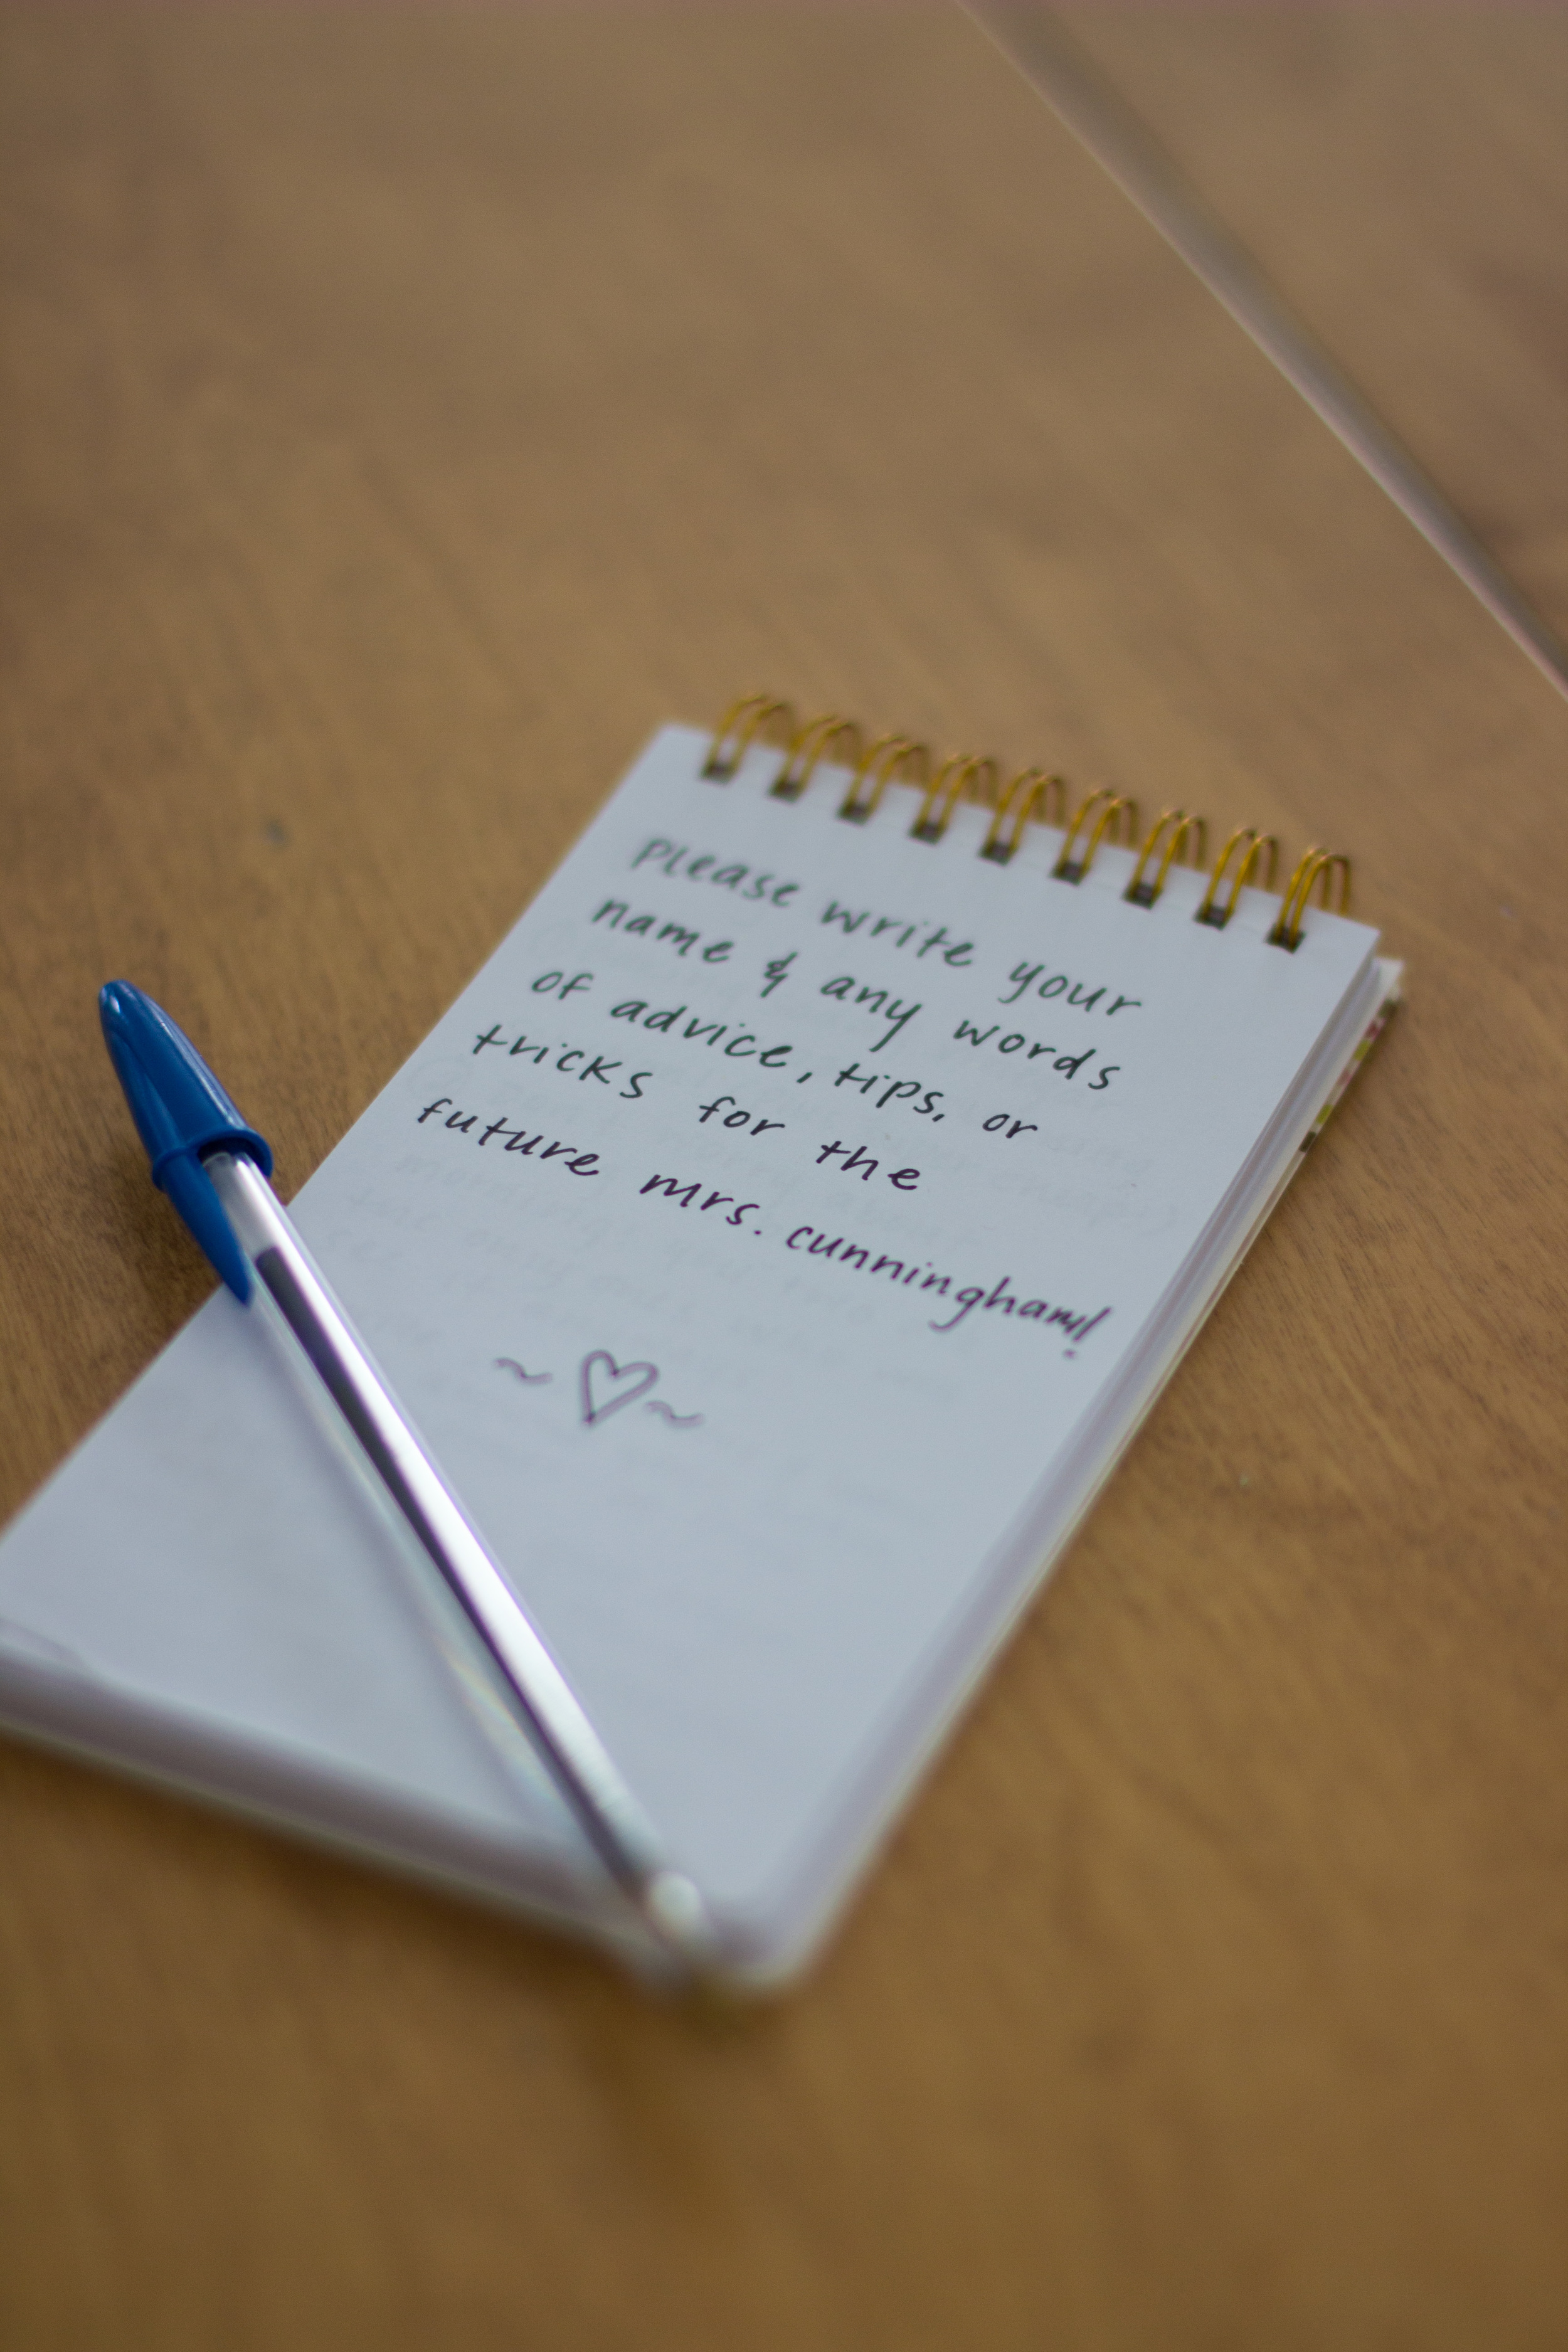 please write your
name & any words
of advice, tips, or
tricks for the
future mrs. cunningham!
~♡~